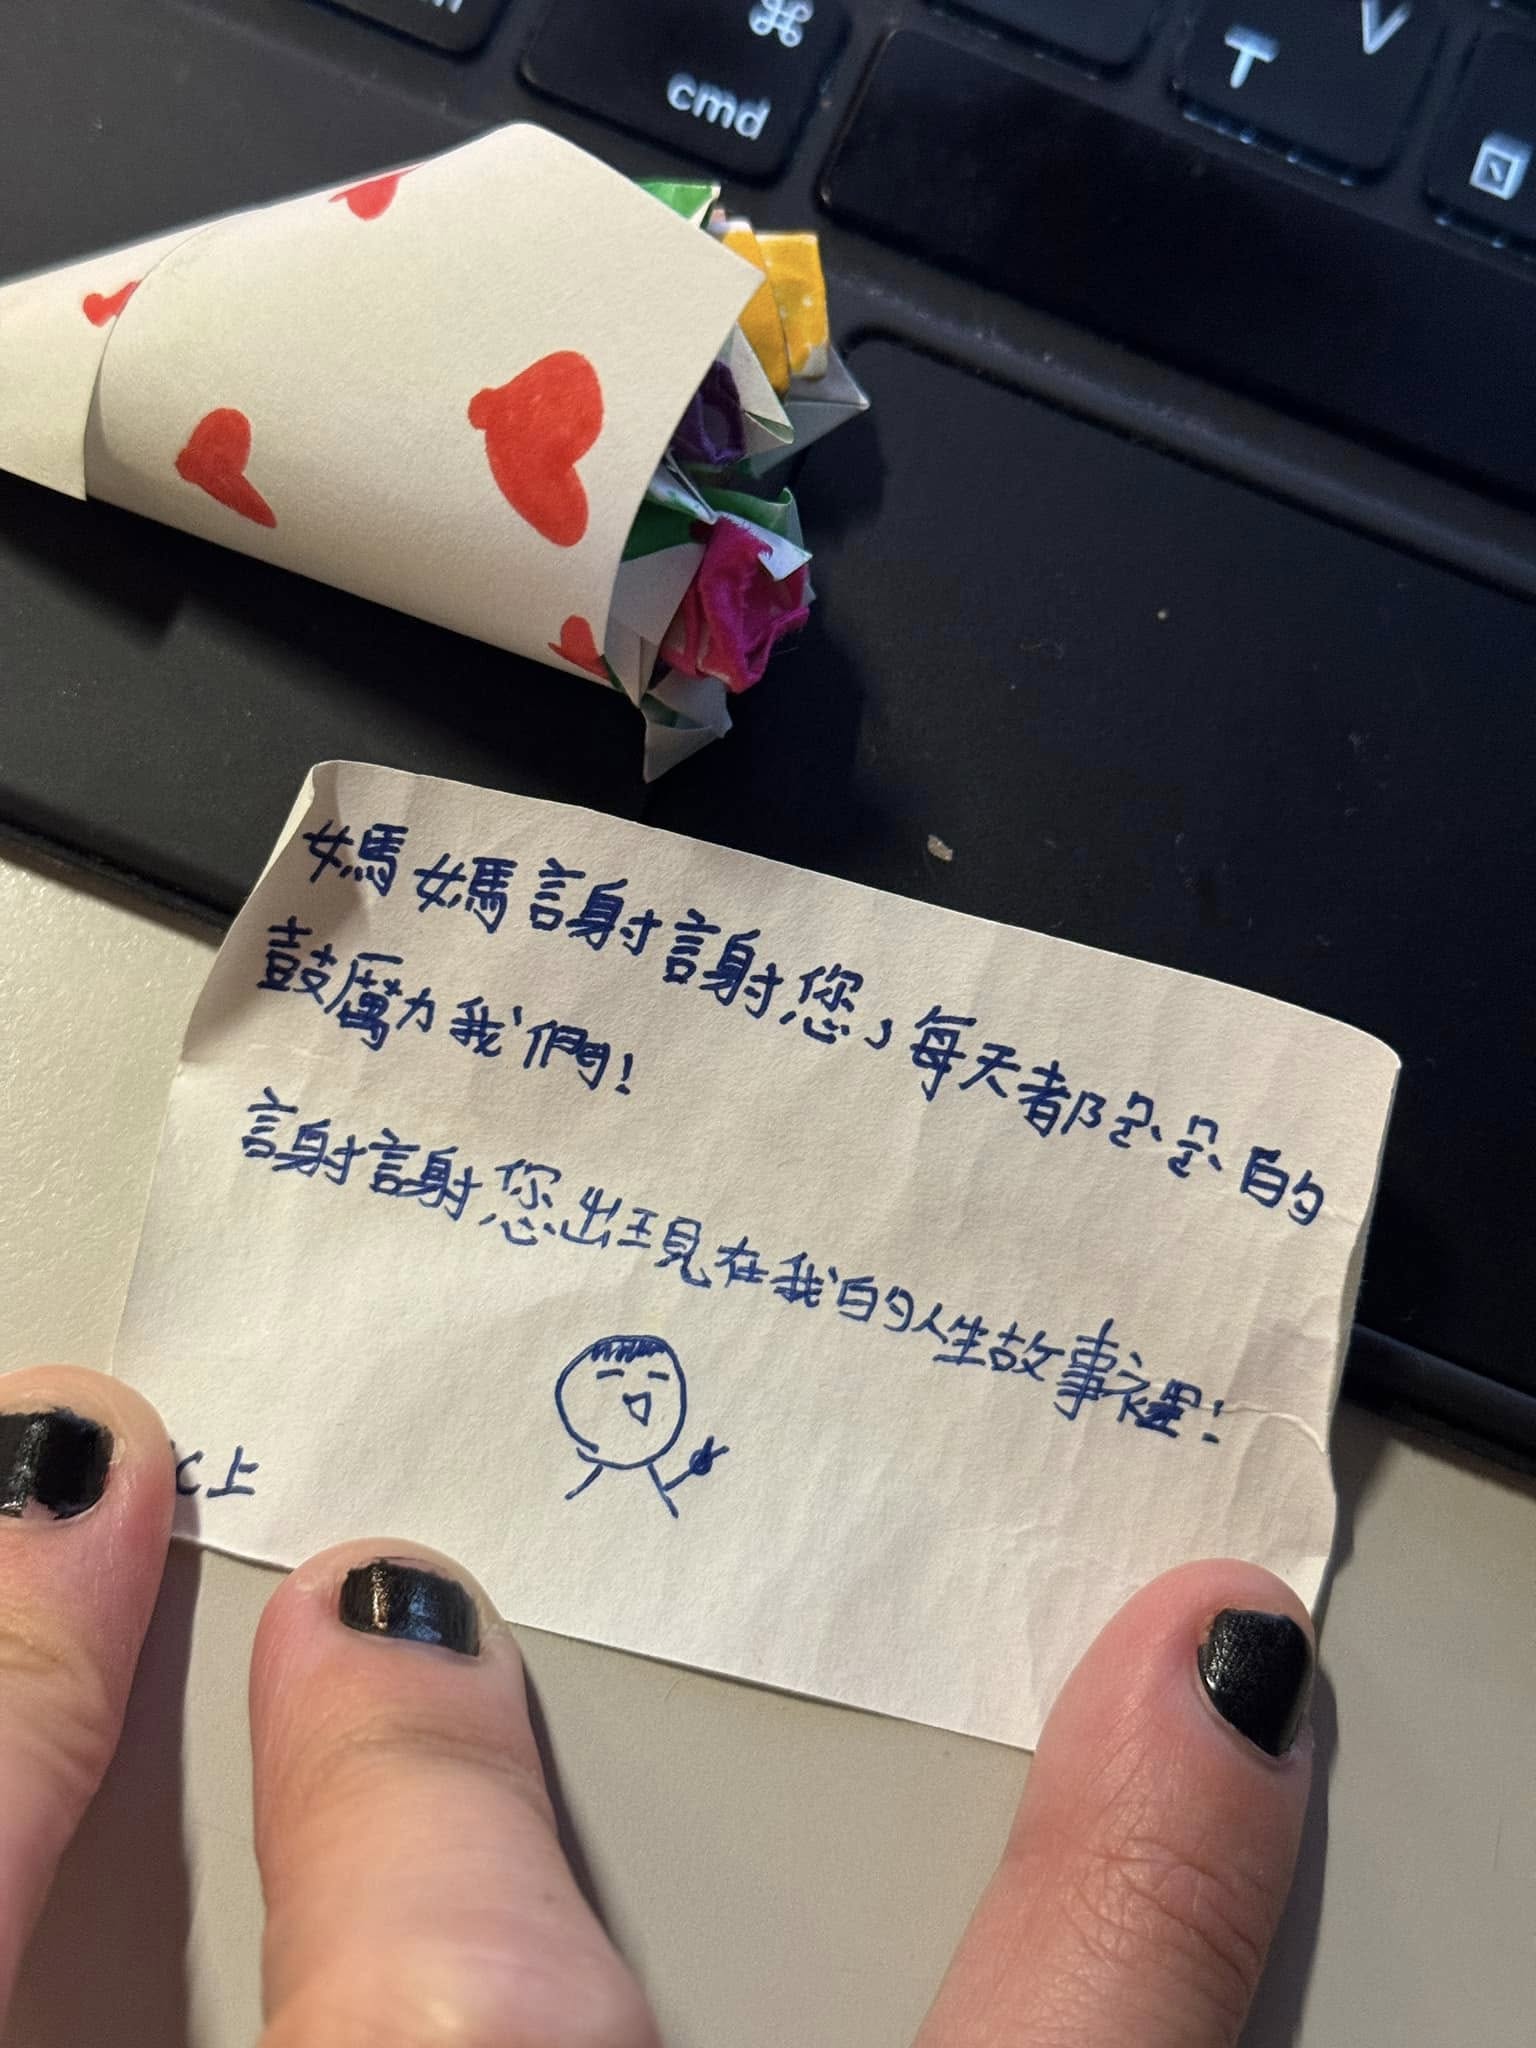 ⌘
cmd
V
ㄒ
ㄖ
媽媽謝謝您，每天都 的
鼓厲力我們！
謝謝您出現在我的人生故事裡！
C上